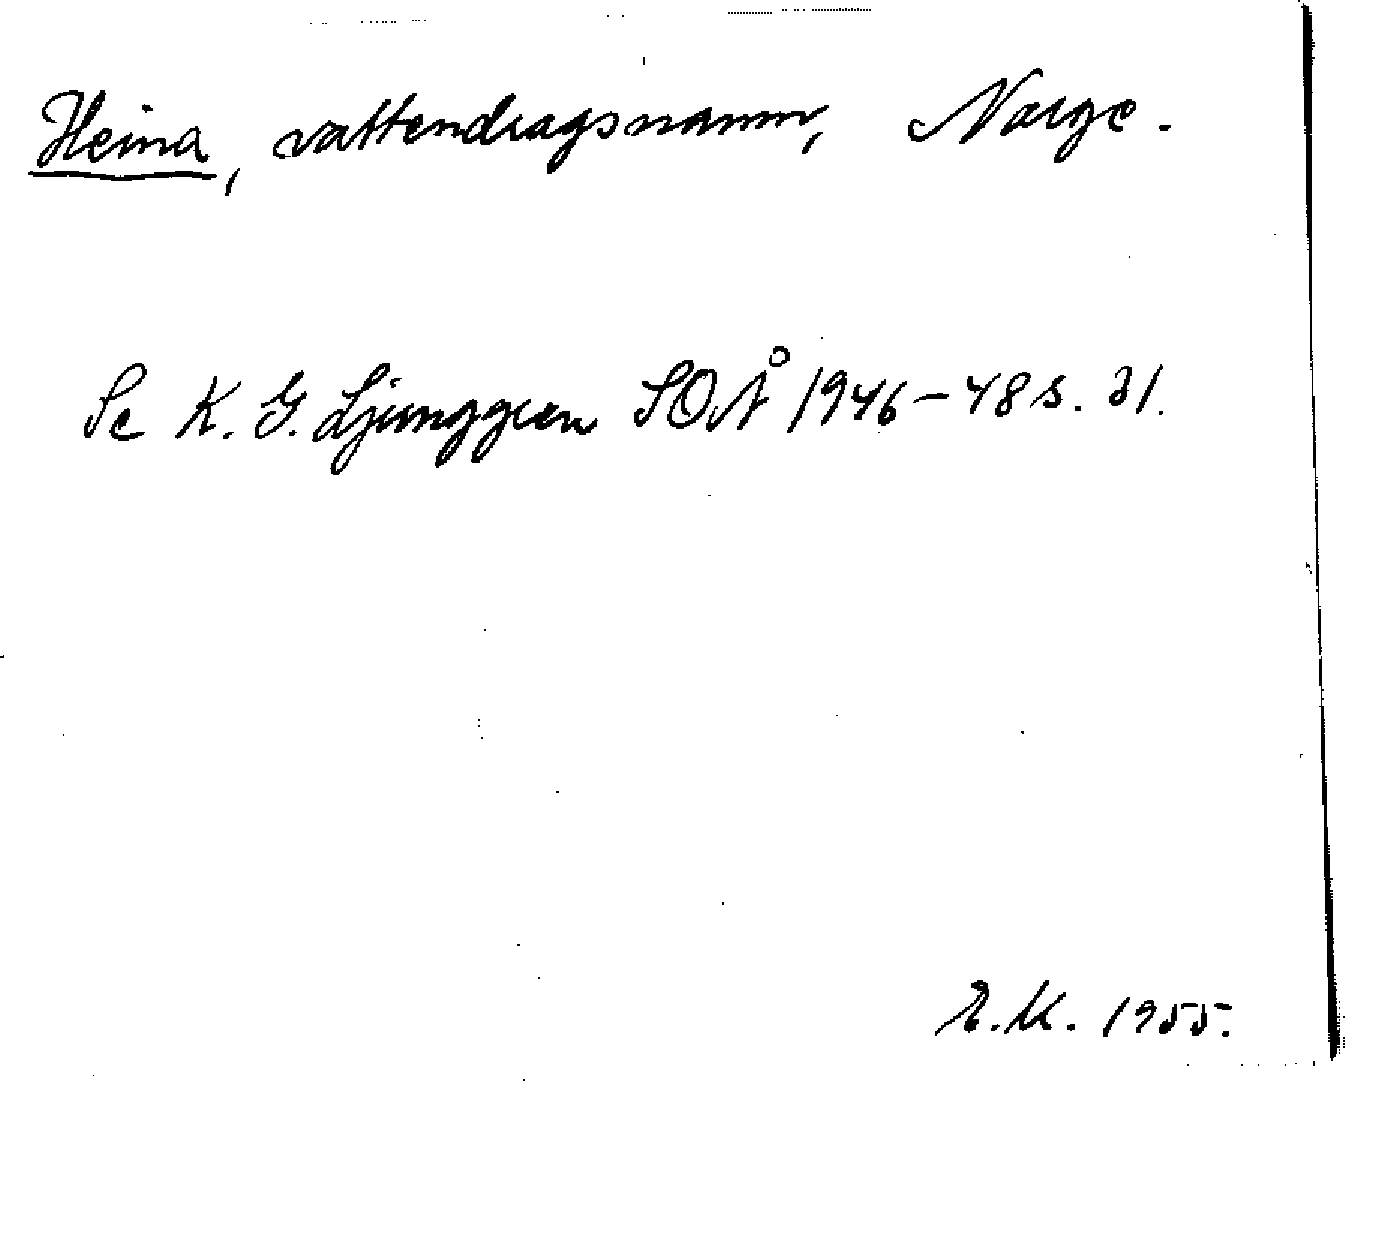 Heina, vattendragsnamn, Norge.
Se K. G. Ljunggren SOÅ 1946–48 s. 31.
E.K. 1955.